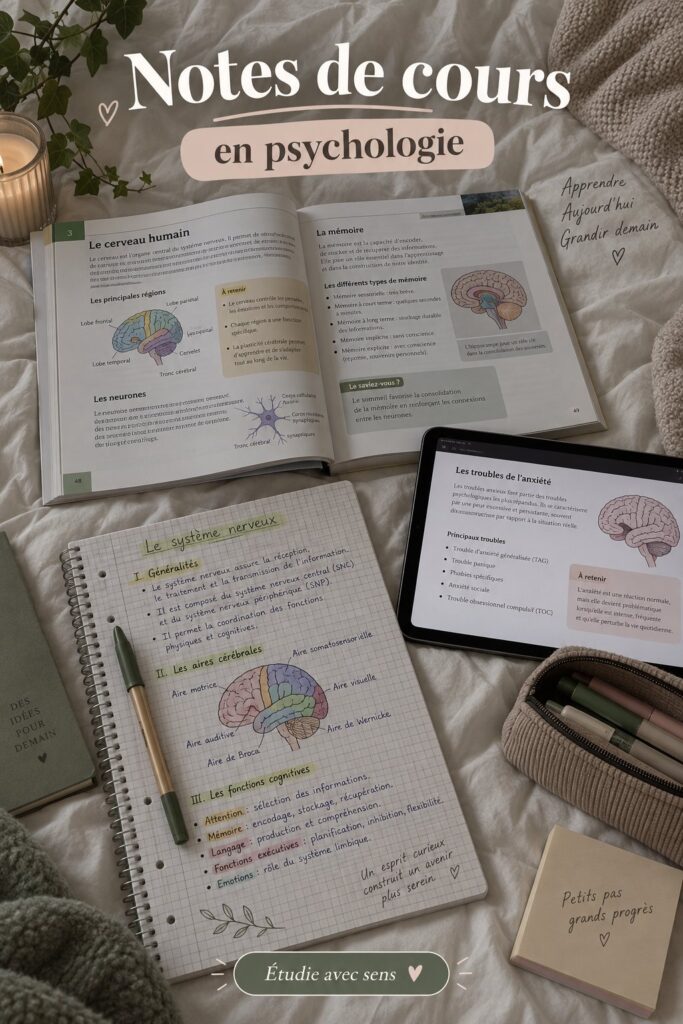 Notes de cours
en psychologie
Apprendre
Aujourd'hui
Grandir demain
3
Le cerveau humain
Le cerveau est l'organe central du système nerveux. Il permet de
Les principales régions
Lobe pariétal
Lobe frontal
Lobe temporal
Cervelet
Tronc cérébral
À retenir
Le cerveau contrôle les pensées,
les émotions et les comportements.
Chaque région a une fonction
spécifique.
La plasticité cérébrale permet
d'apprendre et de s'adapter
tout au long de la vie.
Les neurones
Tronc cérébral
synaptiques
48
La mémoire
La mémoire est la capacité d'encoder,
de stocker et de récupérer des informations.
Elle joue un rôle essentiel dans l'apprentissage
et dans la construction de notre identité.
Les différents types de mémoire
• Mémoire sensorielle : très brève.
• Mémoire à court terme : quelques secondes
à minutes.
• Mémoire à long terme : stockage durable
des informations.
• Mémoire implicite : sans conscience
• Mémoire explicite : avec conscience
(reprose, souvenirs personnels).
dans la consolidation des
Le saviez-vous ?
Le sommeil favorise la consolidation
de la mémoire en renforçant les connexions
entre les neurones.
49
Les troubles de l'anxiété
Les troubles anxieux font partie des troubles
psychologiques les plus répandus. Ils se caractérisent
par une peur excessive et persistante, souvent
disproportionnée par rapport à la situation réelle.
Principaux troubles
• Trouble d'anxiété généralisée (TAG)
• Trouble panique
• Phobies spécifiques
• Anxiété sociale
• Trouble obsessionnel compulsif (TOC)
À retenir
L'anxiété est une réaction normale,
mais elle devient problématique
lorsqu'elle est intense, fréquente
et qu'elle perturbe la vie quotidienne.
Le système nerveux
I. Généralités
• Le système nerveux assure la réception,
le traitement et la transmission de l'information.
• Il est composé du système nerveux central (SNC)
et du système nerveux périphérique (SNP).
• Il permet la coordination des fonctions
physiques et cognitives.
II. Les aires cérébrales
Aire somatosensorielle
Aire motrice
Aire visuelle
Aire auditive
Aire de Wernicke
Aire de Broca
III. Les fonctions cognitives
• Attention : sélection des informations.
• Mémoire : encodage, stockage, récupération.
• Langage : production et compréhension.
• Fonctions exécutives : planification, inhibition, flexibilité.
• Emotions : rôle du système limbique.
Un esprit curieux
construit un avenir
plus serein
DES
IDÉES
POUR
DEMAIN
Petits pas
grands progrès
Étudie avec sens